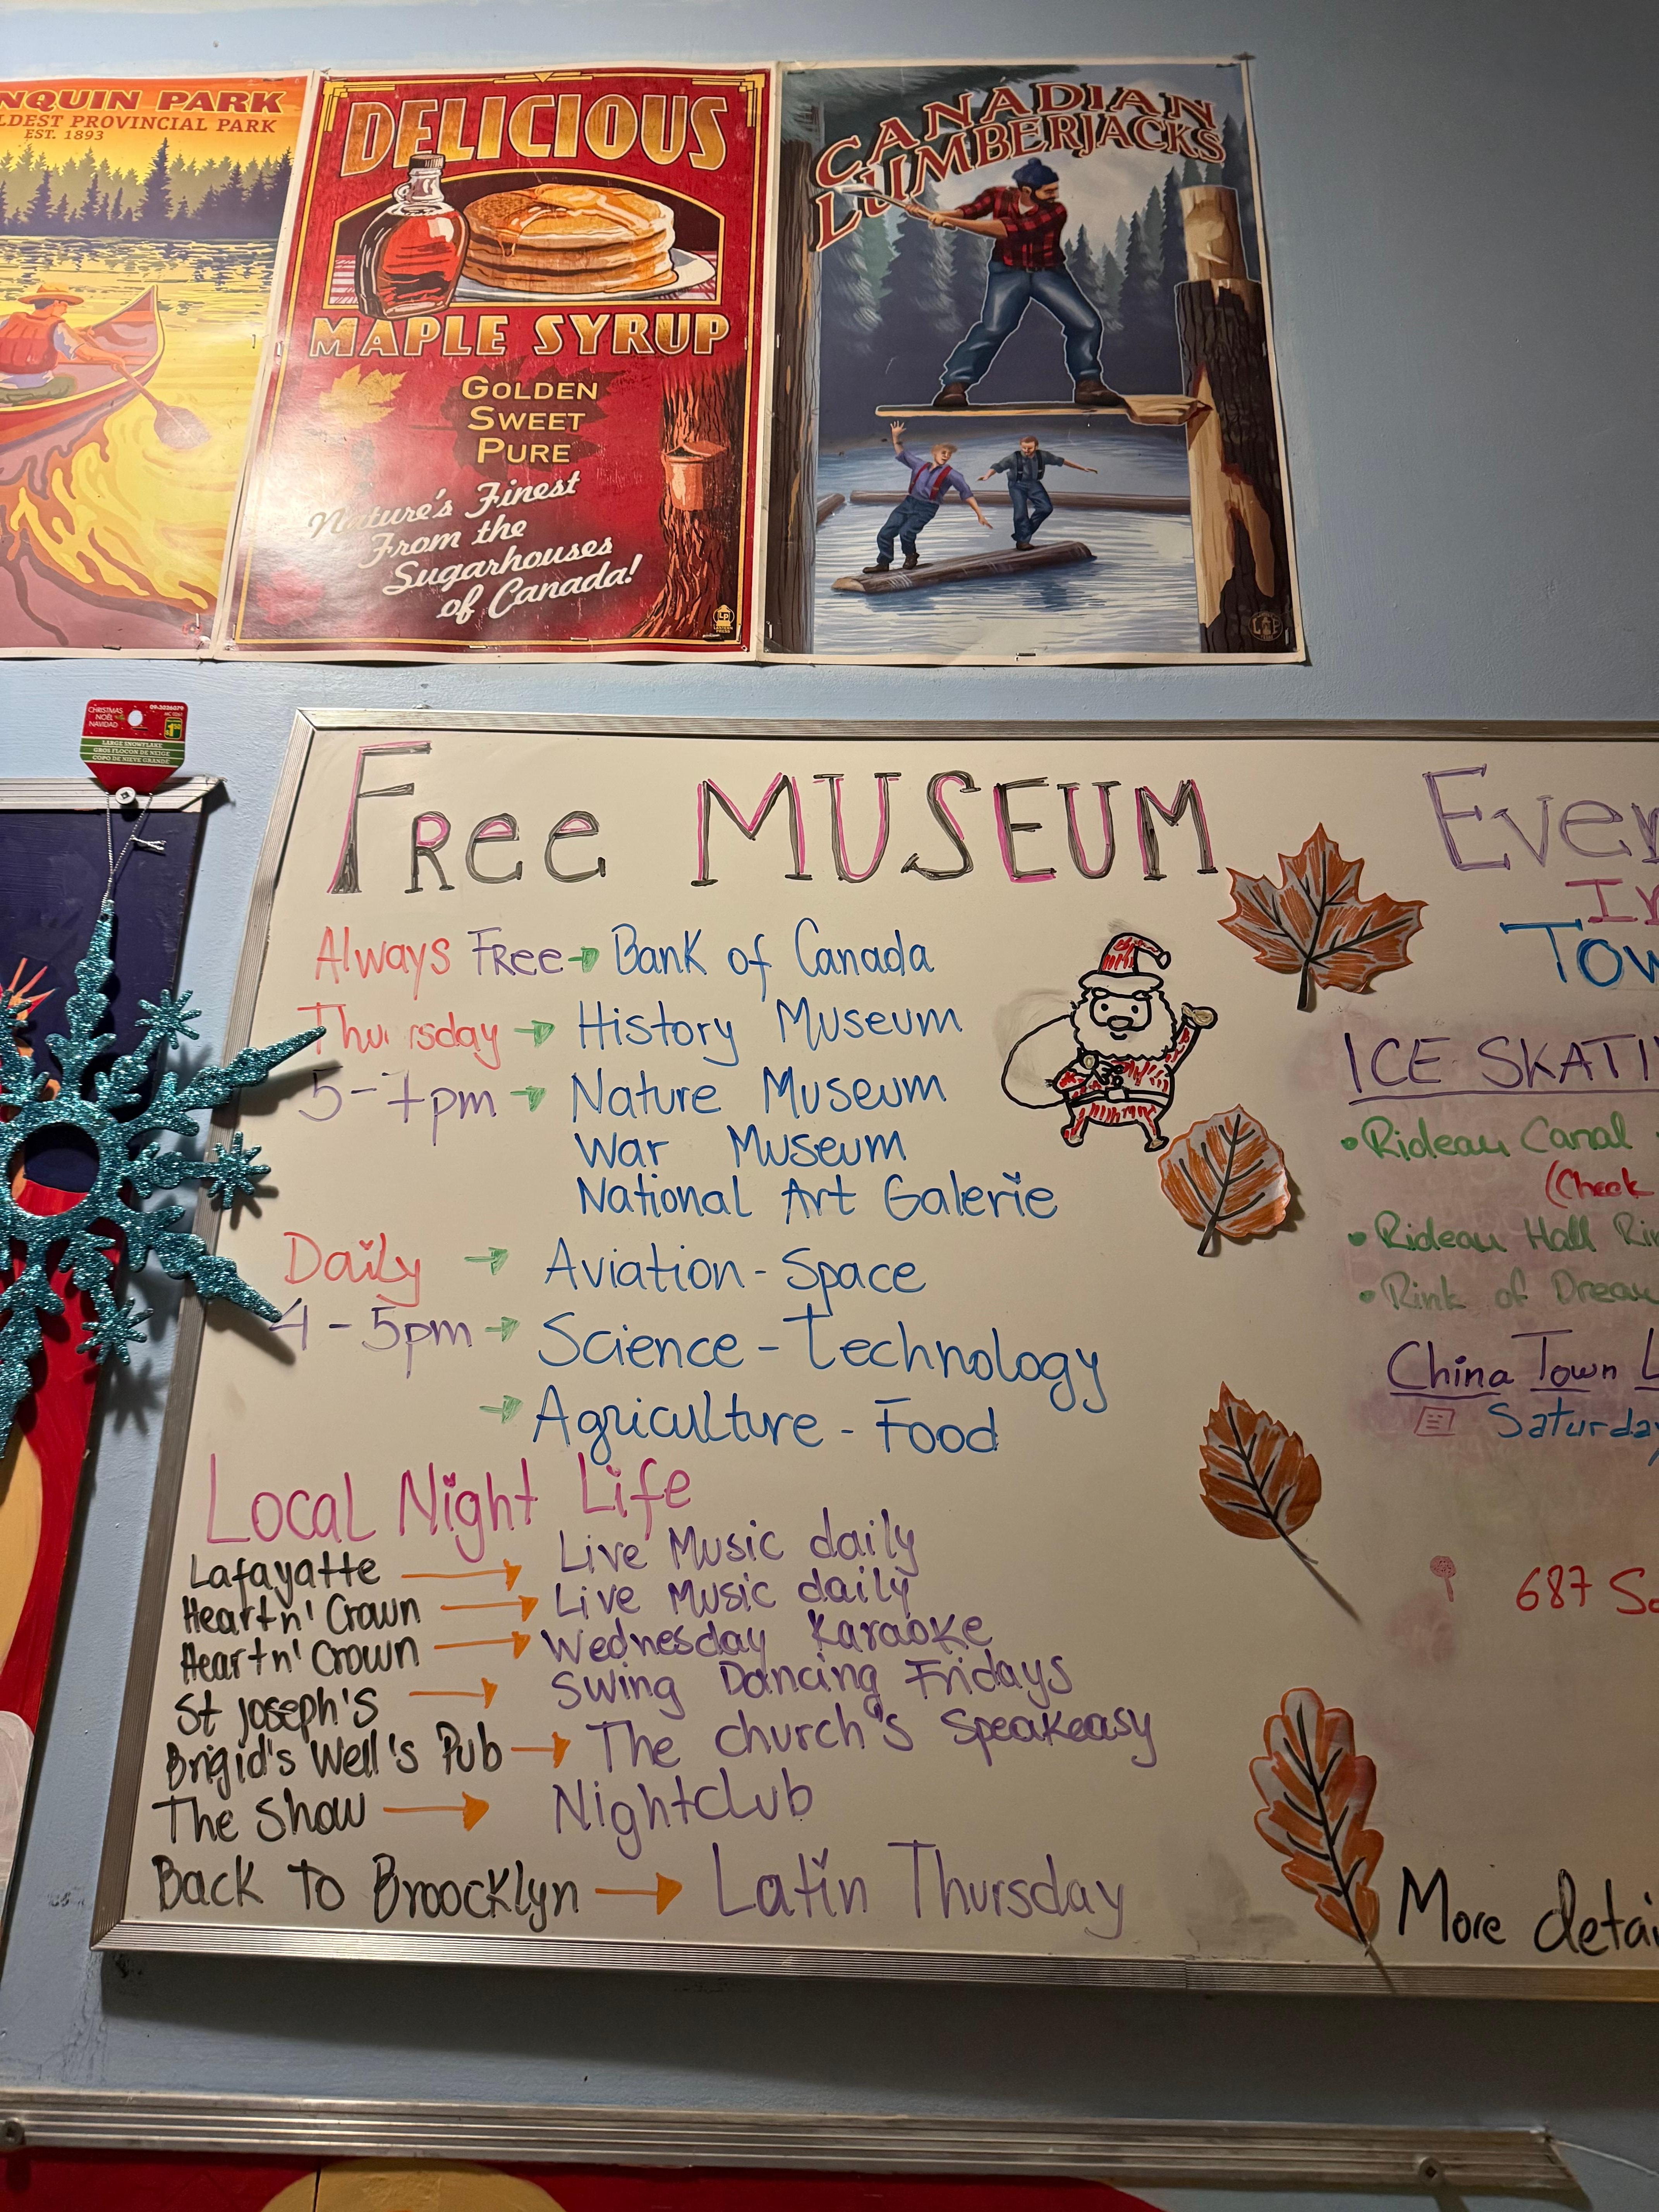 NQUIN PARK
LDEST PROVINCIAL PARK
EST. 1893
DELICIOUS
MAPLE SYRUP
GOLDEN
SWEET
PURE
Nature's Finest
From the
Sugarhouses
of Canada!
CANADIAN
LUMBERJACKS
CHRISTMAS
NOËL
NAVIDAD
LARGE SNOWFLAKE
GROS FLOCON DE NEIGE
COPO DE NIEVE GRANDE
Free MUSEUM
Always Free → Bank of Canada
Thursday → History Museum
5-7pm → Nature Museum
War Museum
National Art Galerie
Daily → Aviation - Space
4-5pm → Science - Technology
→ Agriculture - Food
Local Night Life
Lafayatte → Live Music daily
Heart n' Crown → Live Music daily
Heart n' Crown → Wednesday Karaoke
St Joseph's → Swing Dancing Fridays
Brigid's Well's Pub → The church's Speakeasy
The Show → Nightclub
Back To Broocklyn → Latin Thursday
Even
In
Tow
ICE SKATI
• Rideau Canal
(Check
• Rideau Hall Rin
• Rink of Dream
China Town L
Saturday
687 So
More detai